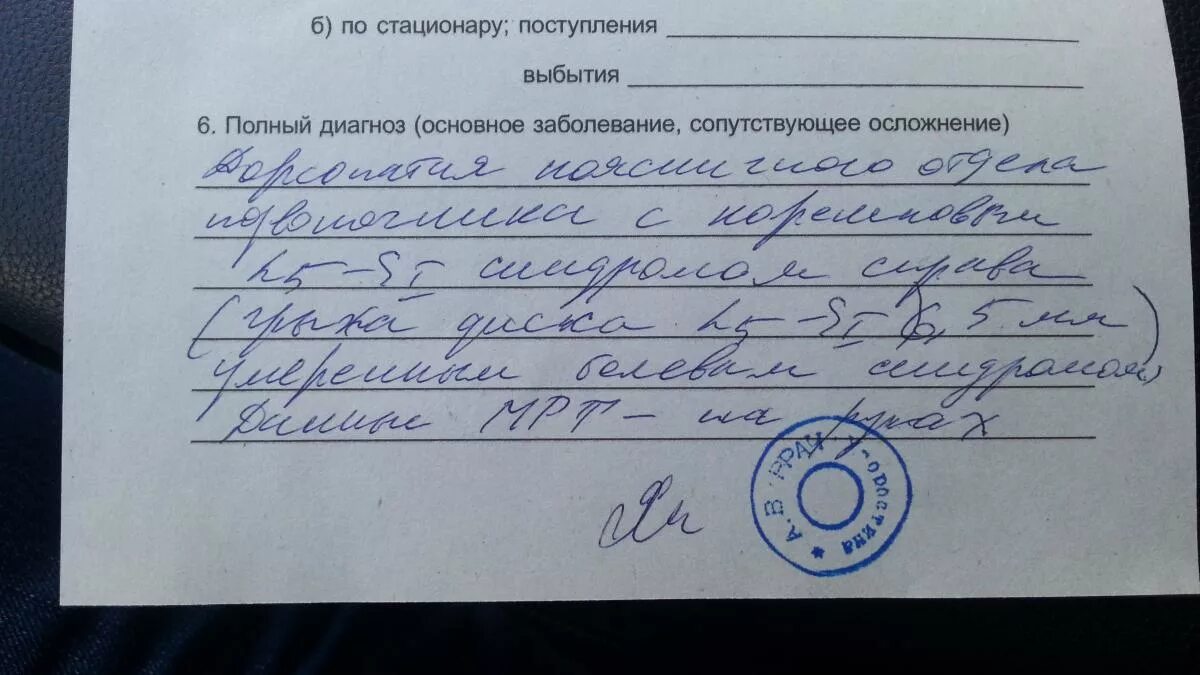 б) по стационару; поступления
выбытия
6. Полный диагноз (основное заболевание, сопутствующее осложнение)
Дорсопатия поясничного отдела
позвоночника с корешковым
L5-SI синдромом справа
(грыжа диска L5-SI 6,5 мм)
умеренным болевым синдромом)
Данные МРТ - на руках
ВРАЧ
А.В.